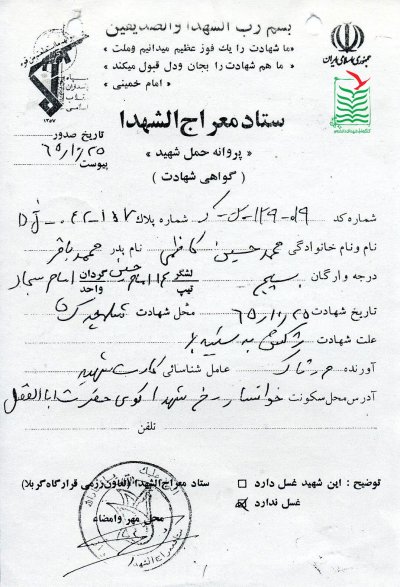 بسم رب الشهدا والصدیقین
«ما شهادت را یك فوز عظیم میدانیم وملت
ما هم شهادت را بجان ودل قبول میکند»
« امام خمینی »
جمهوری اسلامی ایران
سپاه
پاسداران
انقلاب
اسلامی
۱۳۵۷
ستاد معراج الشهدا
« پروانه حمل شهید »
( گواهی شهادت )
تاریخ صدور
۶۵/۱۰/۲۵
پیوست
شماره کد ۵۱۹-۱۲۹-ل-ک شماره پلاك DJ-۰۴۲-۱۵۷
نام ونام خانوادگی محمد حسین کاظمی نام پدر محمد باقر
درجه وارگان بسیج لشگر تیپ ۱۴ امام حسین گردان واحد امام سجاد
تاریخ شهادت ۶۵/۱۰/۲۵ محل شهادت شلمچه
علت شهادت ترکش به سینه
آورنده عامل شناسائی کارت شهید
آدرس محل سکونت خوانسار شهدا کوی حضرت اباالفضل
تلفن
توضیح : این شهید غسل دارد ☐
غسل ندارد ☒
ستاد معراج الشهدا (تعاون رزمی قرارگاه کربلا)
محل مهر وامضاء